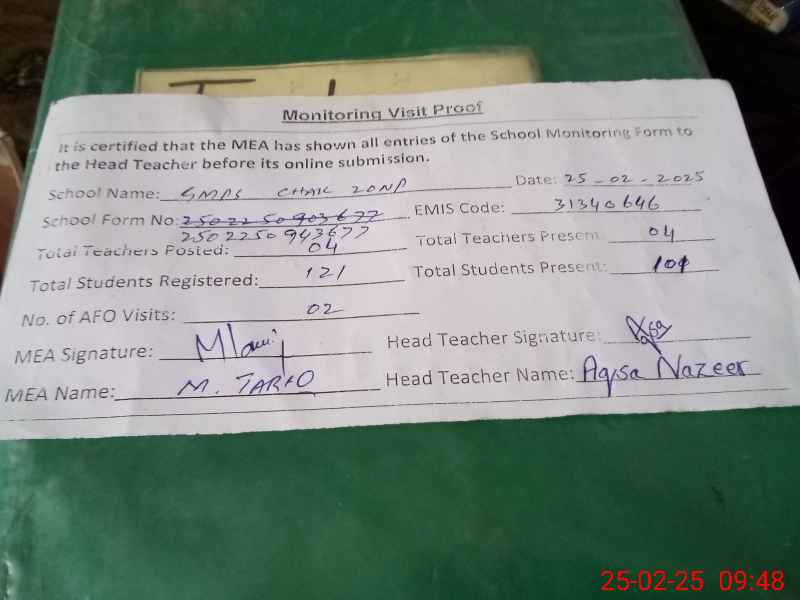 Monitoring Visit Proof
It is certified that the MEA has shown all entries of the School Monitoring Form to
the Head Teacher before its online submission.
School Name: GMPS CHAK 20NP Date: 25-02-2025
School Form No: 2502250903677 EMIS Code: 31340646
2502250943677
Total Teachers Posted: 04 Total Teachers Present: 04
Total Students Registered: 121 Total Students Present: 101
No. of AFO Visits: 02
MEA Signature: Head Teacher Signature:
MEA Name: M. TARIQ Head Teacher Name: Aqsa Nazeer
25-02-25 09:48